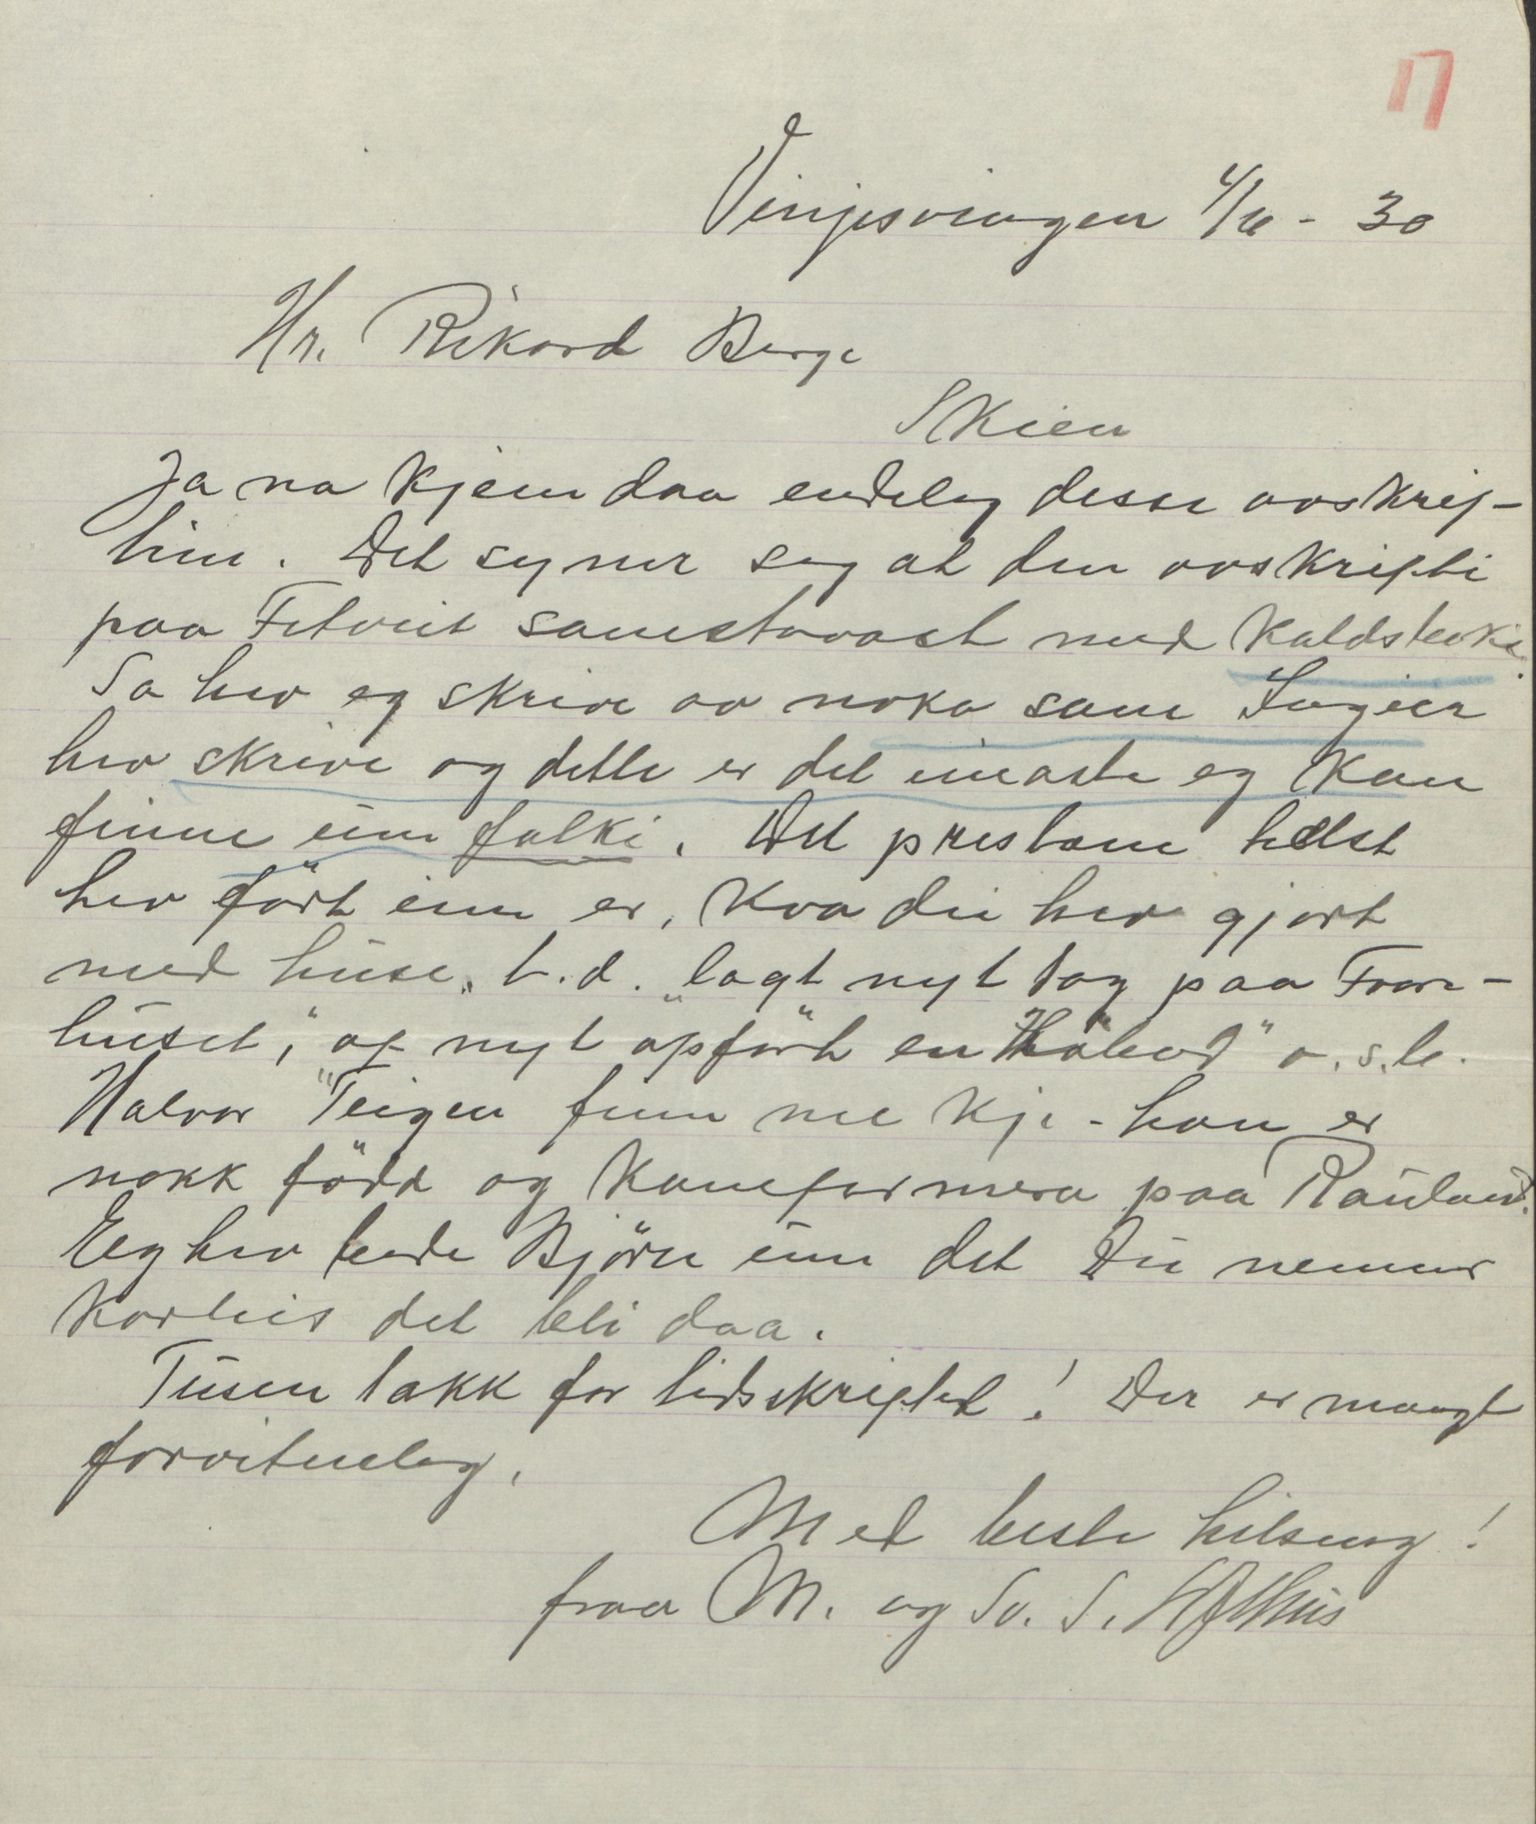 17
Vinjesvingen 4/6 - 30
Hr. Rikard Berge
Skien
Ja no kjem daa endeleg desse avskrif-
tine. Det syner seg at den avskrifti
paa Fetveit samstavast med Kaldstevki.
So hev eg skrive av noko som Ingier
hev skrive og dette er det einaste eg kan
finne um folki. Det prestane helst
hev fört inn er, kva dei hev gjort
med huse, t.d. "lagt nyt tag paa Frem-
huset," og nyt opfört en "Höbod" o.s.b.
Halvor Teigen finn me kje - han er
nokk född og konfermera paa Rauland.
Eg hev bede Björn um det Du nemner
korleis det bli daa.
Tusen takk for tidskriftet! Der er mangt
forvitneleg.
Med beste helsing!
fraa M. og Sv. S. Hofthus